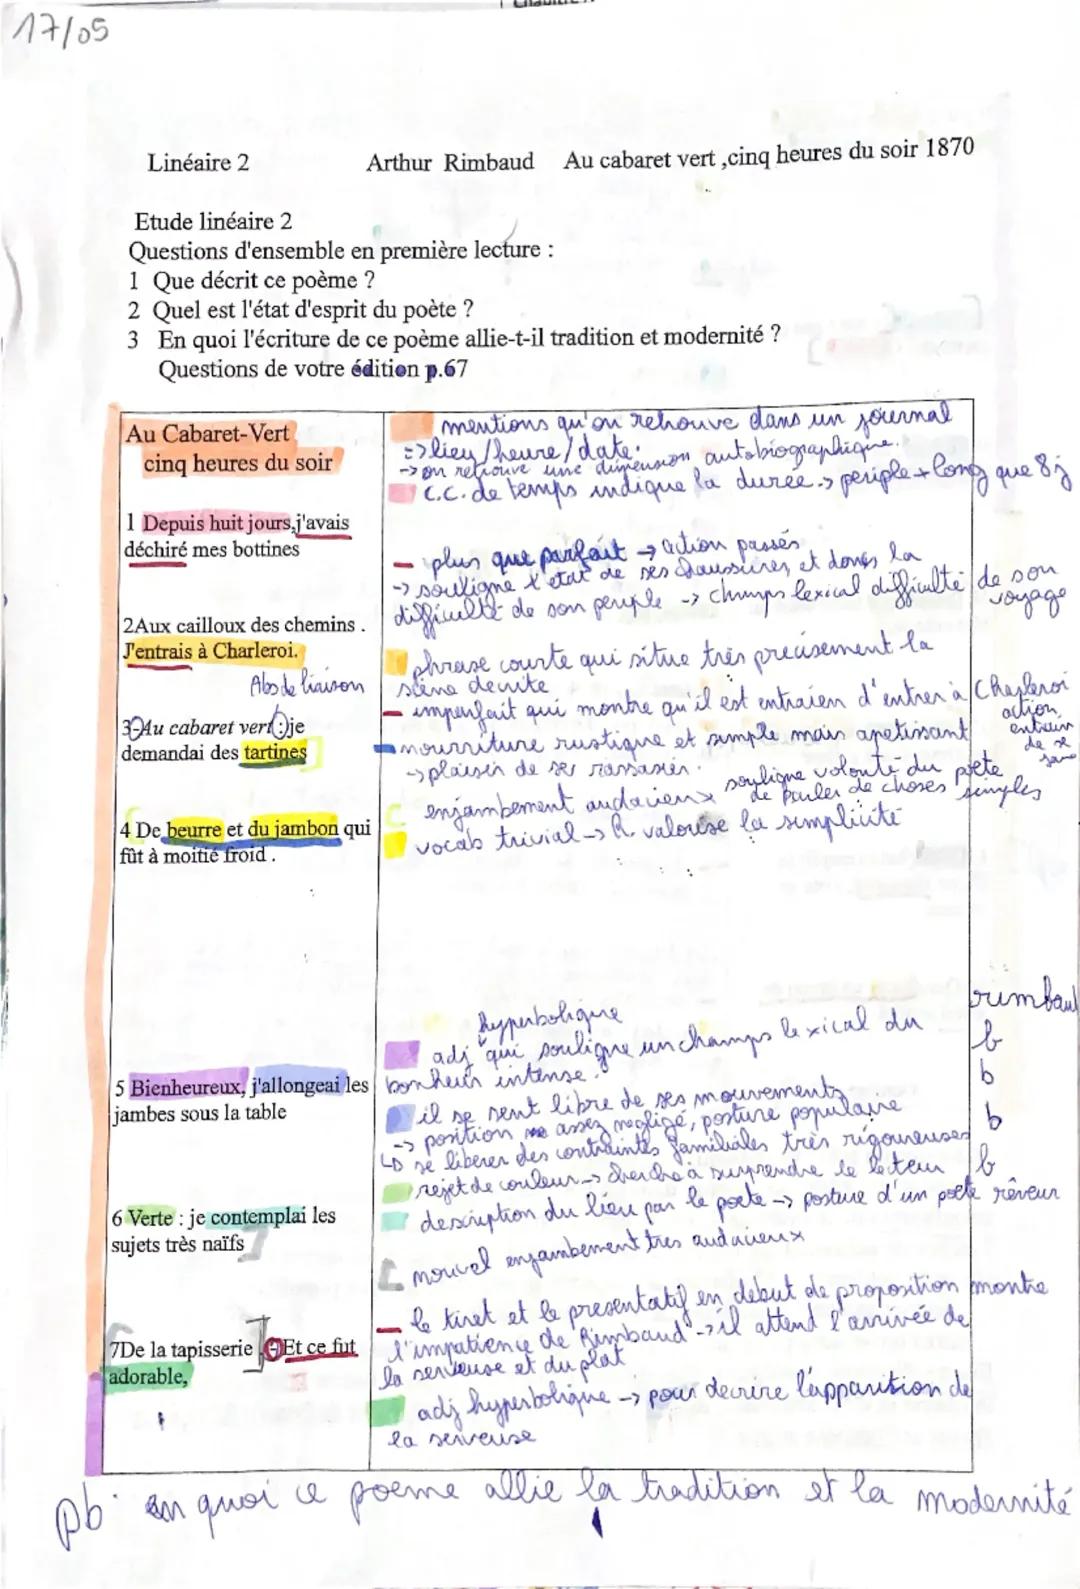 17/05
Linéaire 2 Arthur Rimbaud Au cabaret vert ,cinq heures du soir 1870
Etude linéaire 2
Questions d'ensemble en première lecture :
1 Que décrit ce poème ?
2 Quel est l'état d'esprit du poète ?
3 En quoi l'écriture de ce poème allie-t-il tradition et modernité ?
Questions de votre édition p.67
Au Cabaret-Vert
cinq heures du soir
mentions qu'on retrouve dans un journal
=> lieu/heure/date.
-> on retrouve une dimension autobiographique.
C.C. de temps indique la durée -> periple + long que 8 j
1 Depuis huit jours,j'avais
déchiré mes bottines
- plus que parfait -> action passés
-> souligne l'état de ses chaussures, et donc la
difficulté de son periple -> champs lexical difficulté de son
voyage
2Aux cailloux des chemins .
J'entrais à Charleroi.
Abs de liaison
phrase courte qui situe très précisement la
scène decrite
- imparfait qui montre qu'il est entraien d'entrer à Charleroi
action
entrain
de se
3-Au cabaret vert : je
demandai des tartines
- nourriture rustique et simple mais apetissant
-> plaisir de se rassasier.
enjambement audacieux souligne volonté du poète
de parler de choses simples
4 De beurre et du jambon qui
fût à moitié froid .
vocab trivial -> R valorise la simplicité
hyperbolique
adj qui souligne un champs lexical du
bonheur intense.
rumbaul
b
b
b
b
5 Bienheureux, j'allongeai les
jambes sous la table
il se sent libre de ses mouvements
-> position assez negligé, posture populaire
se libérer des contraintes familiales très rigoureuses
rejet de couleur -> cherche à surprendre le lecteur
6 Verte : je contemplai les
sujets très naïfs
description du lieu par le poete -> posture d'un poete rêveur
[ nouvel enjambement tres audacieux
7De la tapisserie .-Et ce fut
adorable,
- le tiret et le presentatif en début de proposition montre
l'impatience de Rimbaud -> il attend l'arrivée de
la serveuse et du plat
adj hyperbolique -> pour decrire l'apparition de
la serveuse
pb : en quoi ce poeme allie la tradition et la modernité